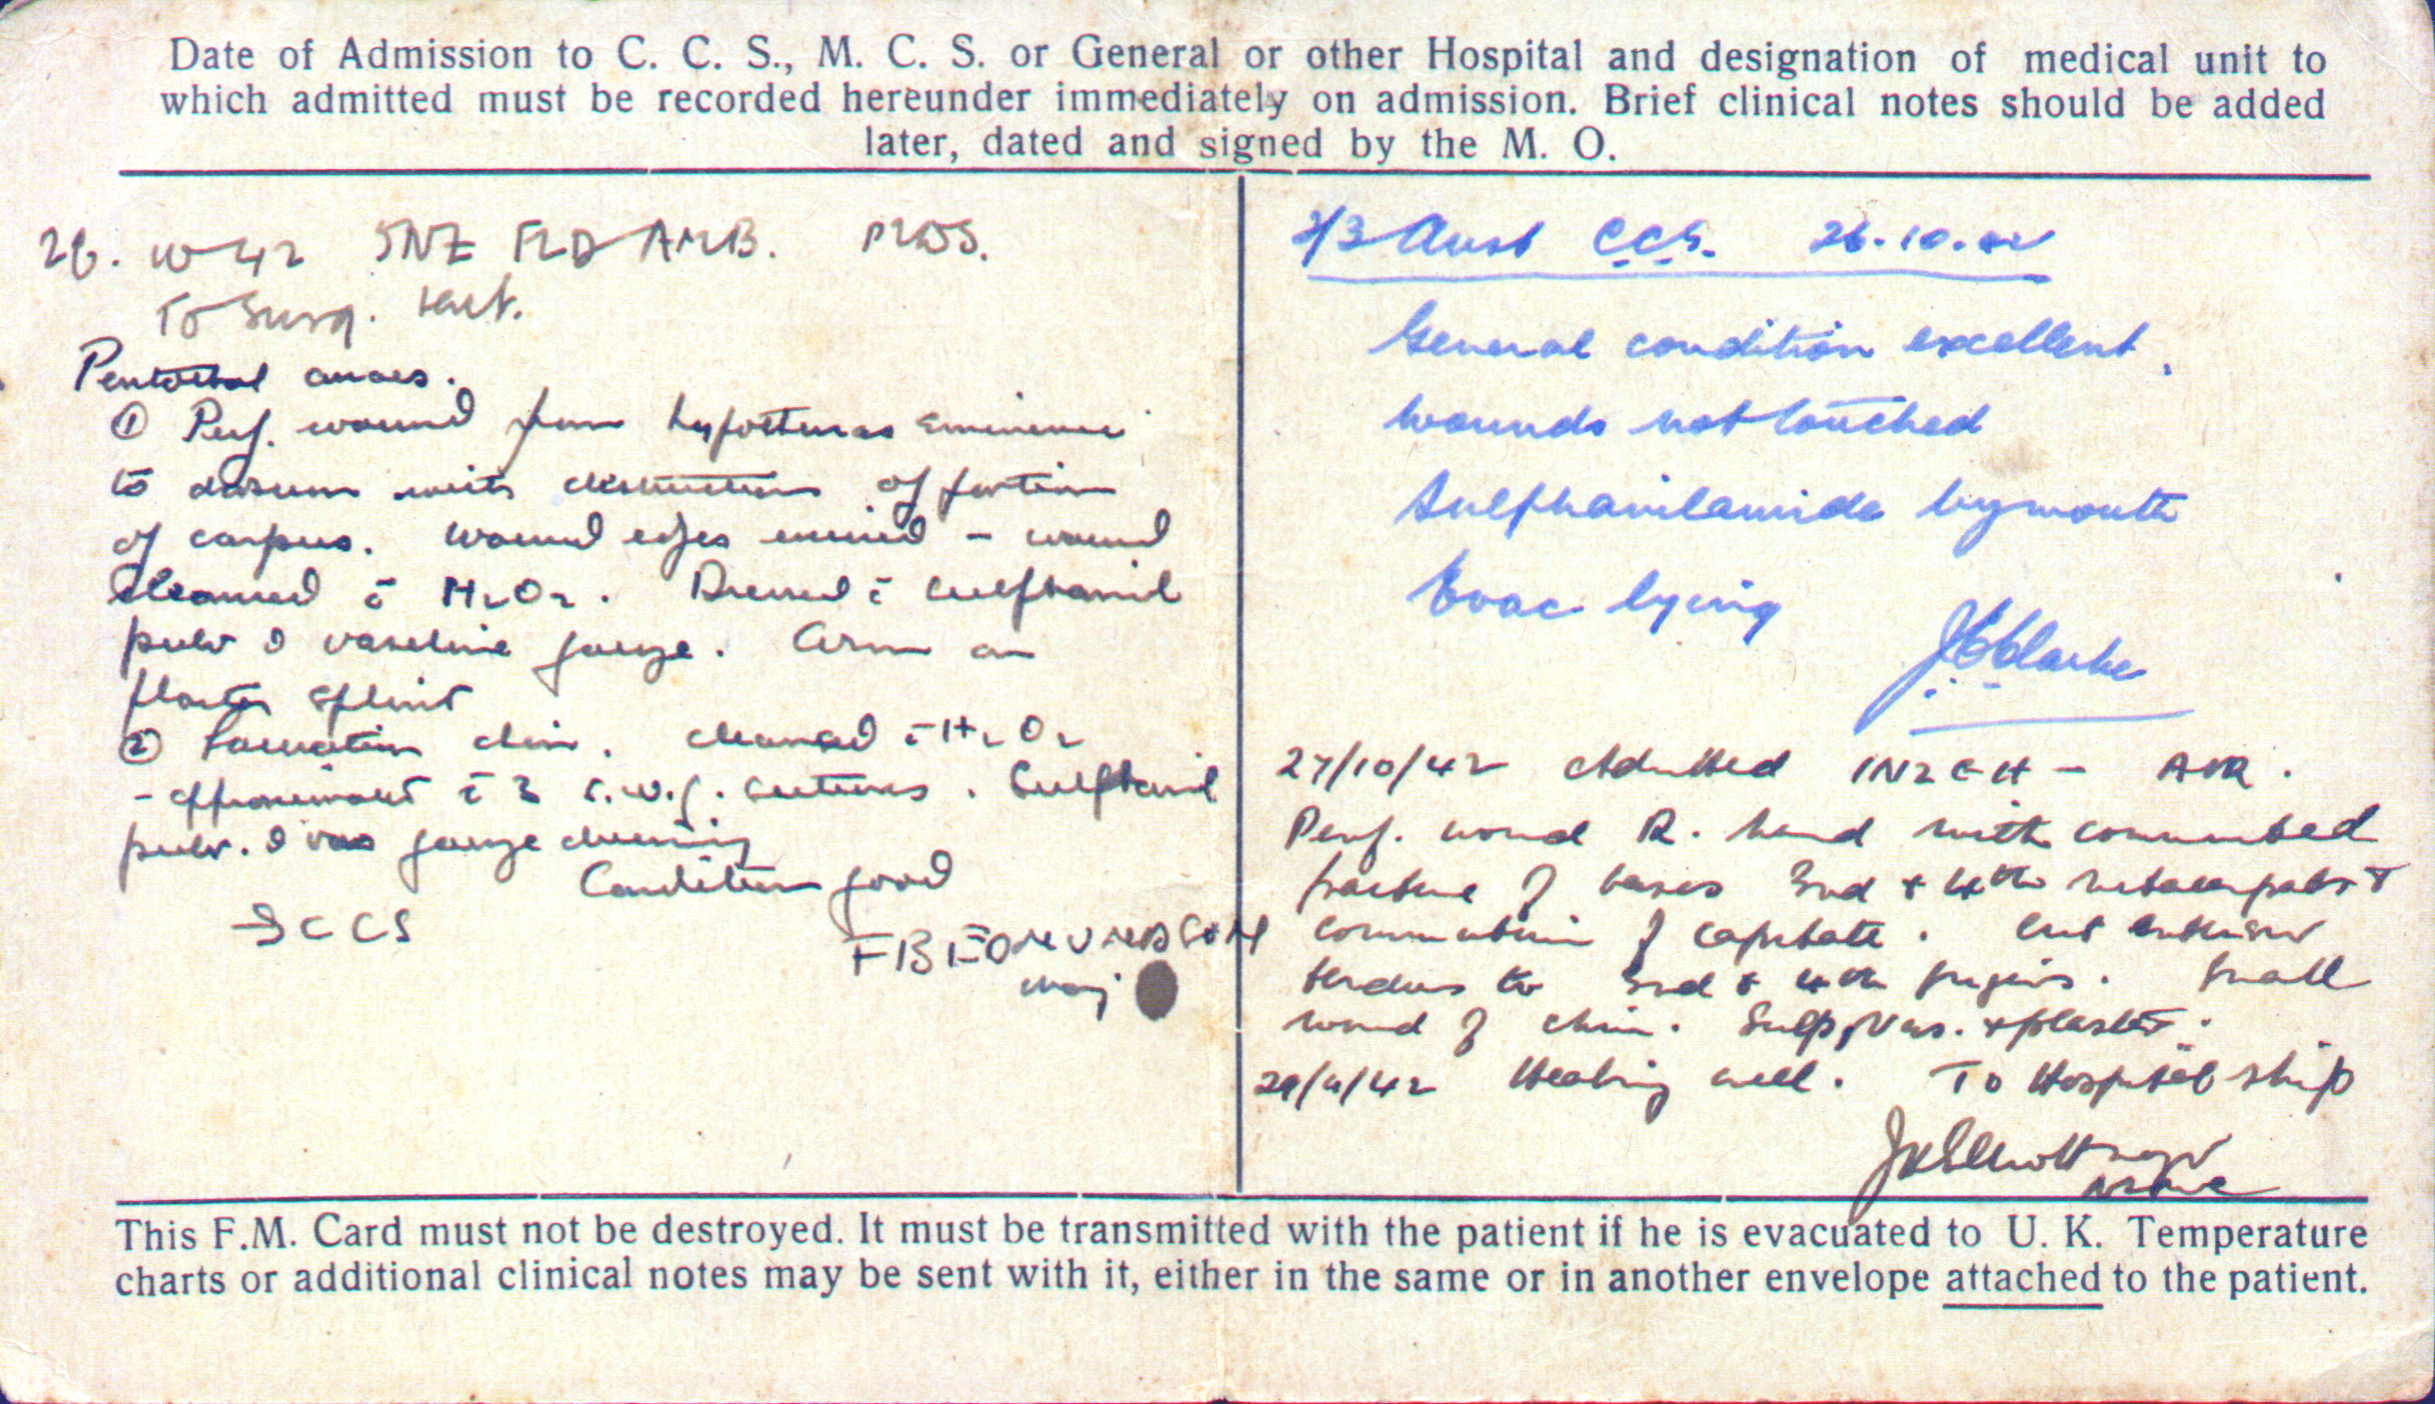 Date of Admission to C. C. S., M. C. S. or General or other Hospital and designation of medical unit to
which admitted must be recorded hereunder immediately on admission. Brief clinical notes should be added
later, dated and signed by the M. O.
26. 10 42 5NZ FLD AMB.
To Surg.
Pentothal anaes.
① Perf. wound from hypothenar eminence
to dorsum with destruction of portion
of carpus. Wound edges excised - wound
cleansed c̄ H2O2. Dressed c̄ sulphanil
pulv & vaseline gauze. Arm on
plaster splint
② Laceration chin. cleansed c̄ H2O2
- approximated c̄ 3 s.w.g. sutures. Sulphanil
pulv. & vas gauze dressing
Condition good
→ CCS
F B EDMUNDSON
Maj
2/3 Aust C.C.S. 26.10.42
General condition excellent.
Wounds not touched
Sulphanilamide by mouth
Evac lying
Clarke
27/10/42 Admitted 1NZGH -
Perf. wound R. hand with comminuted
fracture of bases 3rd + 4th metacarpals +
comminution of capitate. Cut extensor
tendons to 3rd + 4th fingers. Small
wound of chin. Sulp, Vas. + plaster.
29/11/42 Healing well. To Hospital ship
This F.M. Card must not be destroyed. It must be transmitted with the patient if he is evacuated to U. K. Temperature
charts or additional clinical notes may be sent with it, either in the same or in another envelope attached to the patient.